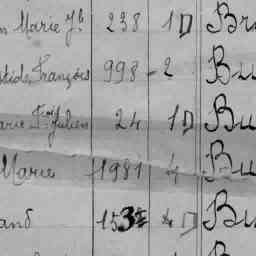 n Marie Jh 238 1D Br
stide François 998 2 Bu
arie Fois Julien 24 1D Bu
Marie 1981 4 Bu
and 153 4D Bu